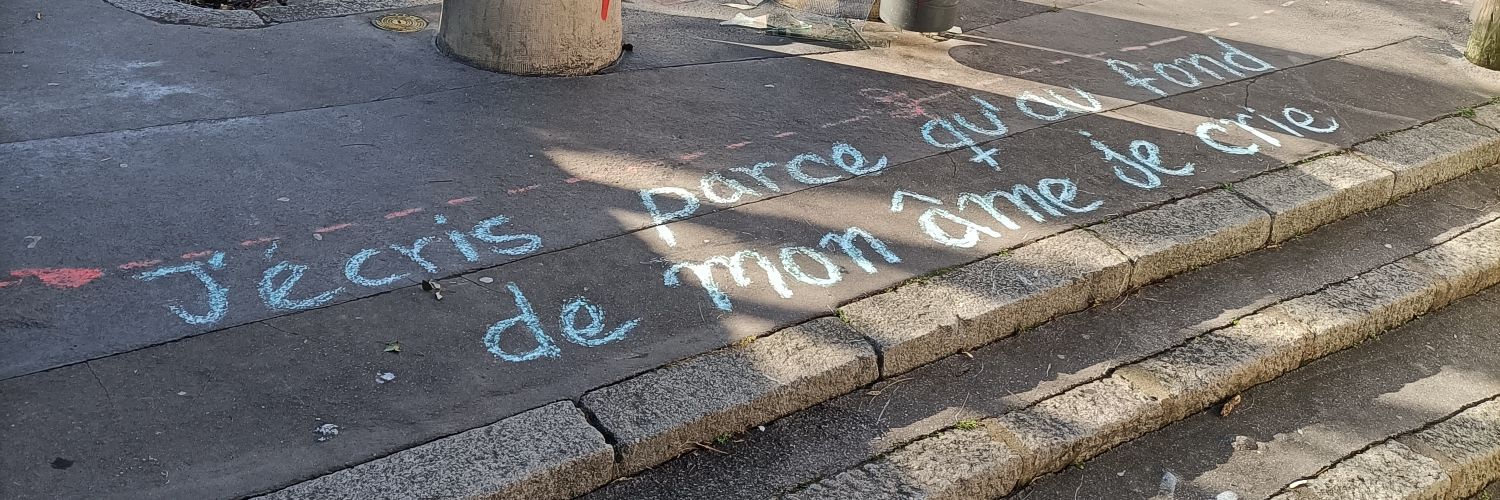 J'écris parce qu'au fond
de mon âme je crie